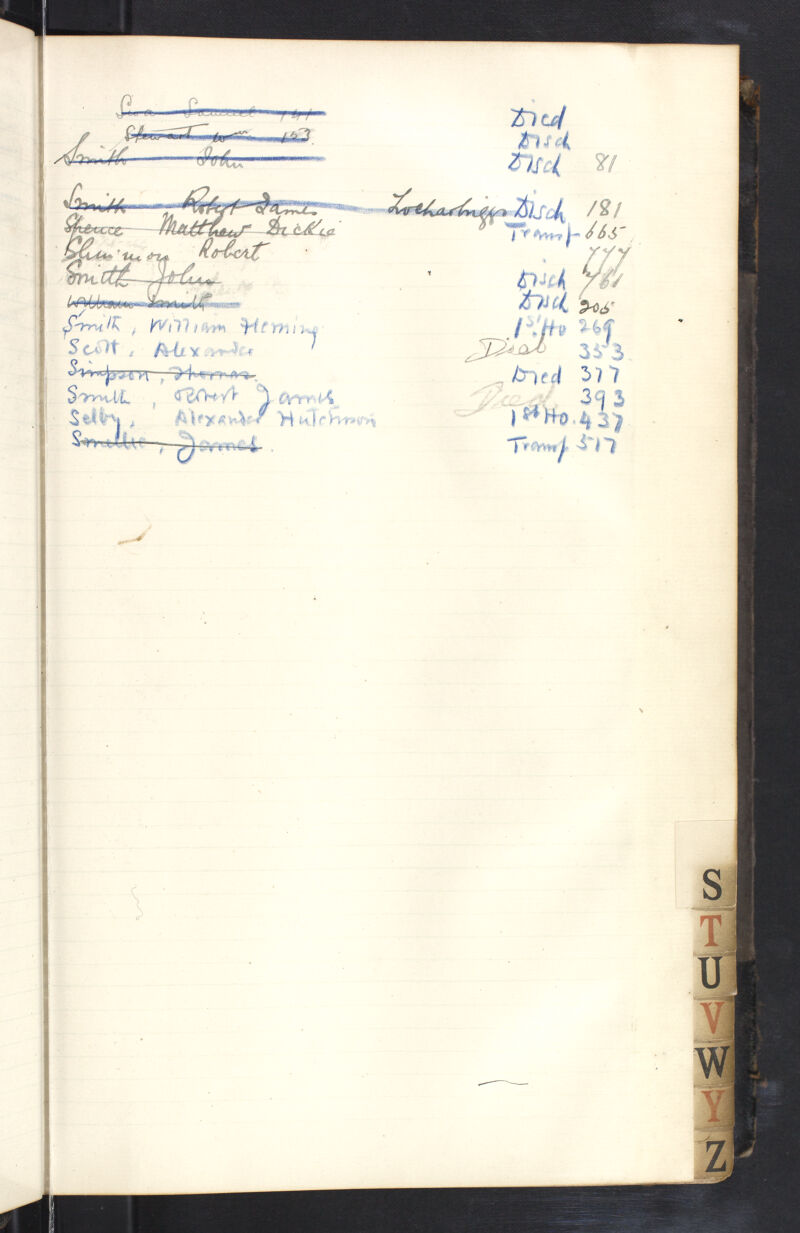 Samuel 141 Died
Stewart Wm 153 Disch
Smith John Disch 81
Smith Robert James Locharbriggs Disch 181
Spence Matthew Dickie Transf 665
Robert 777
Smith John Disch 761
William Smith Disch 205
Smith, William Heming 1st Ho 269
Scott, Alexander Died 353
Simpson, Thomas. Died 377
Smith, Robert James Died 393
Selby, Alexander Hutchison 1st Ho. 437
Smellie, James. Transf 517
S
T
U
V
W
Y
Z